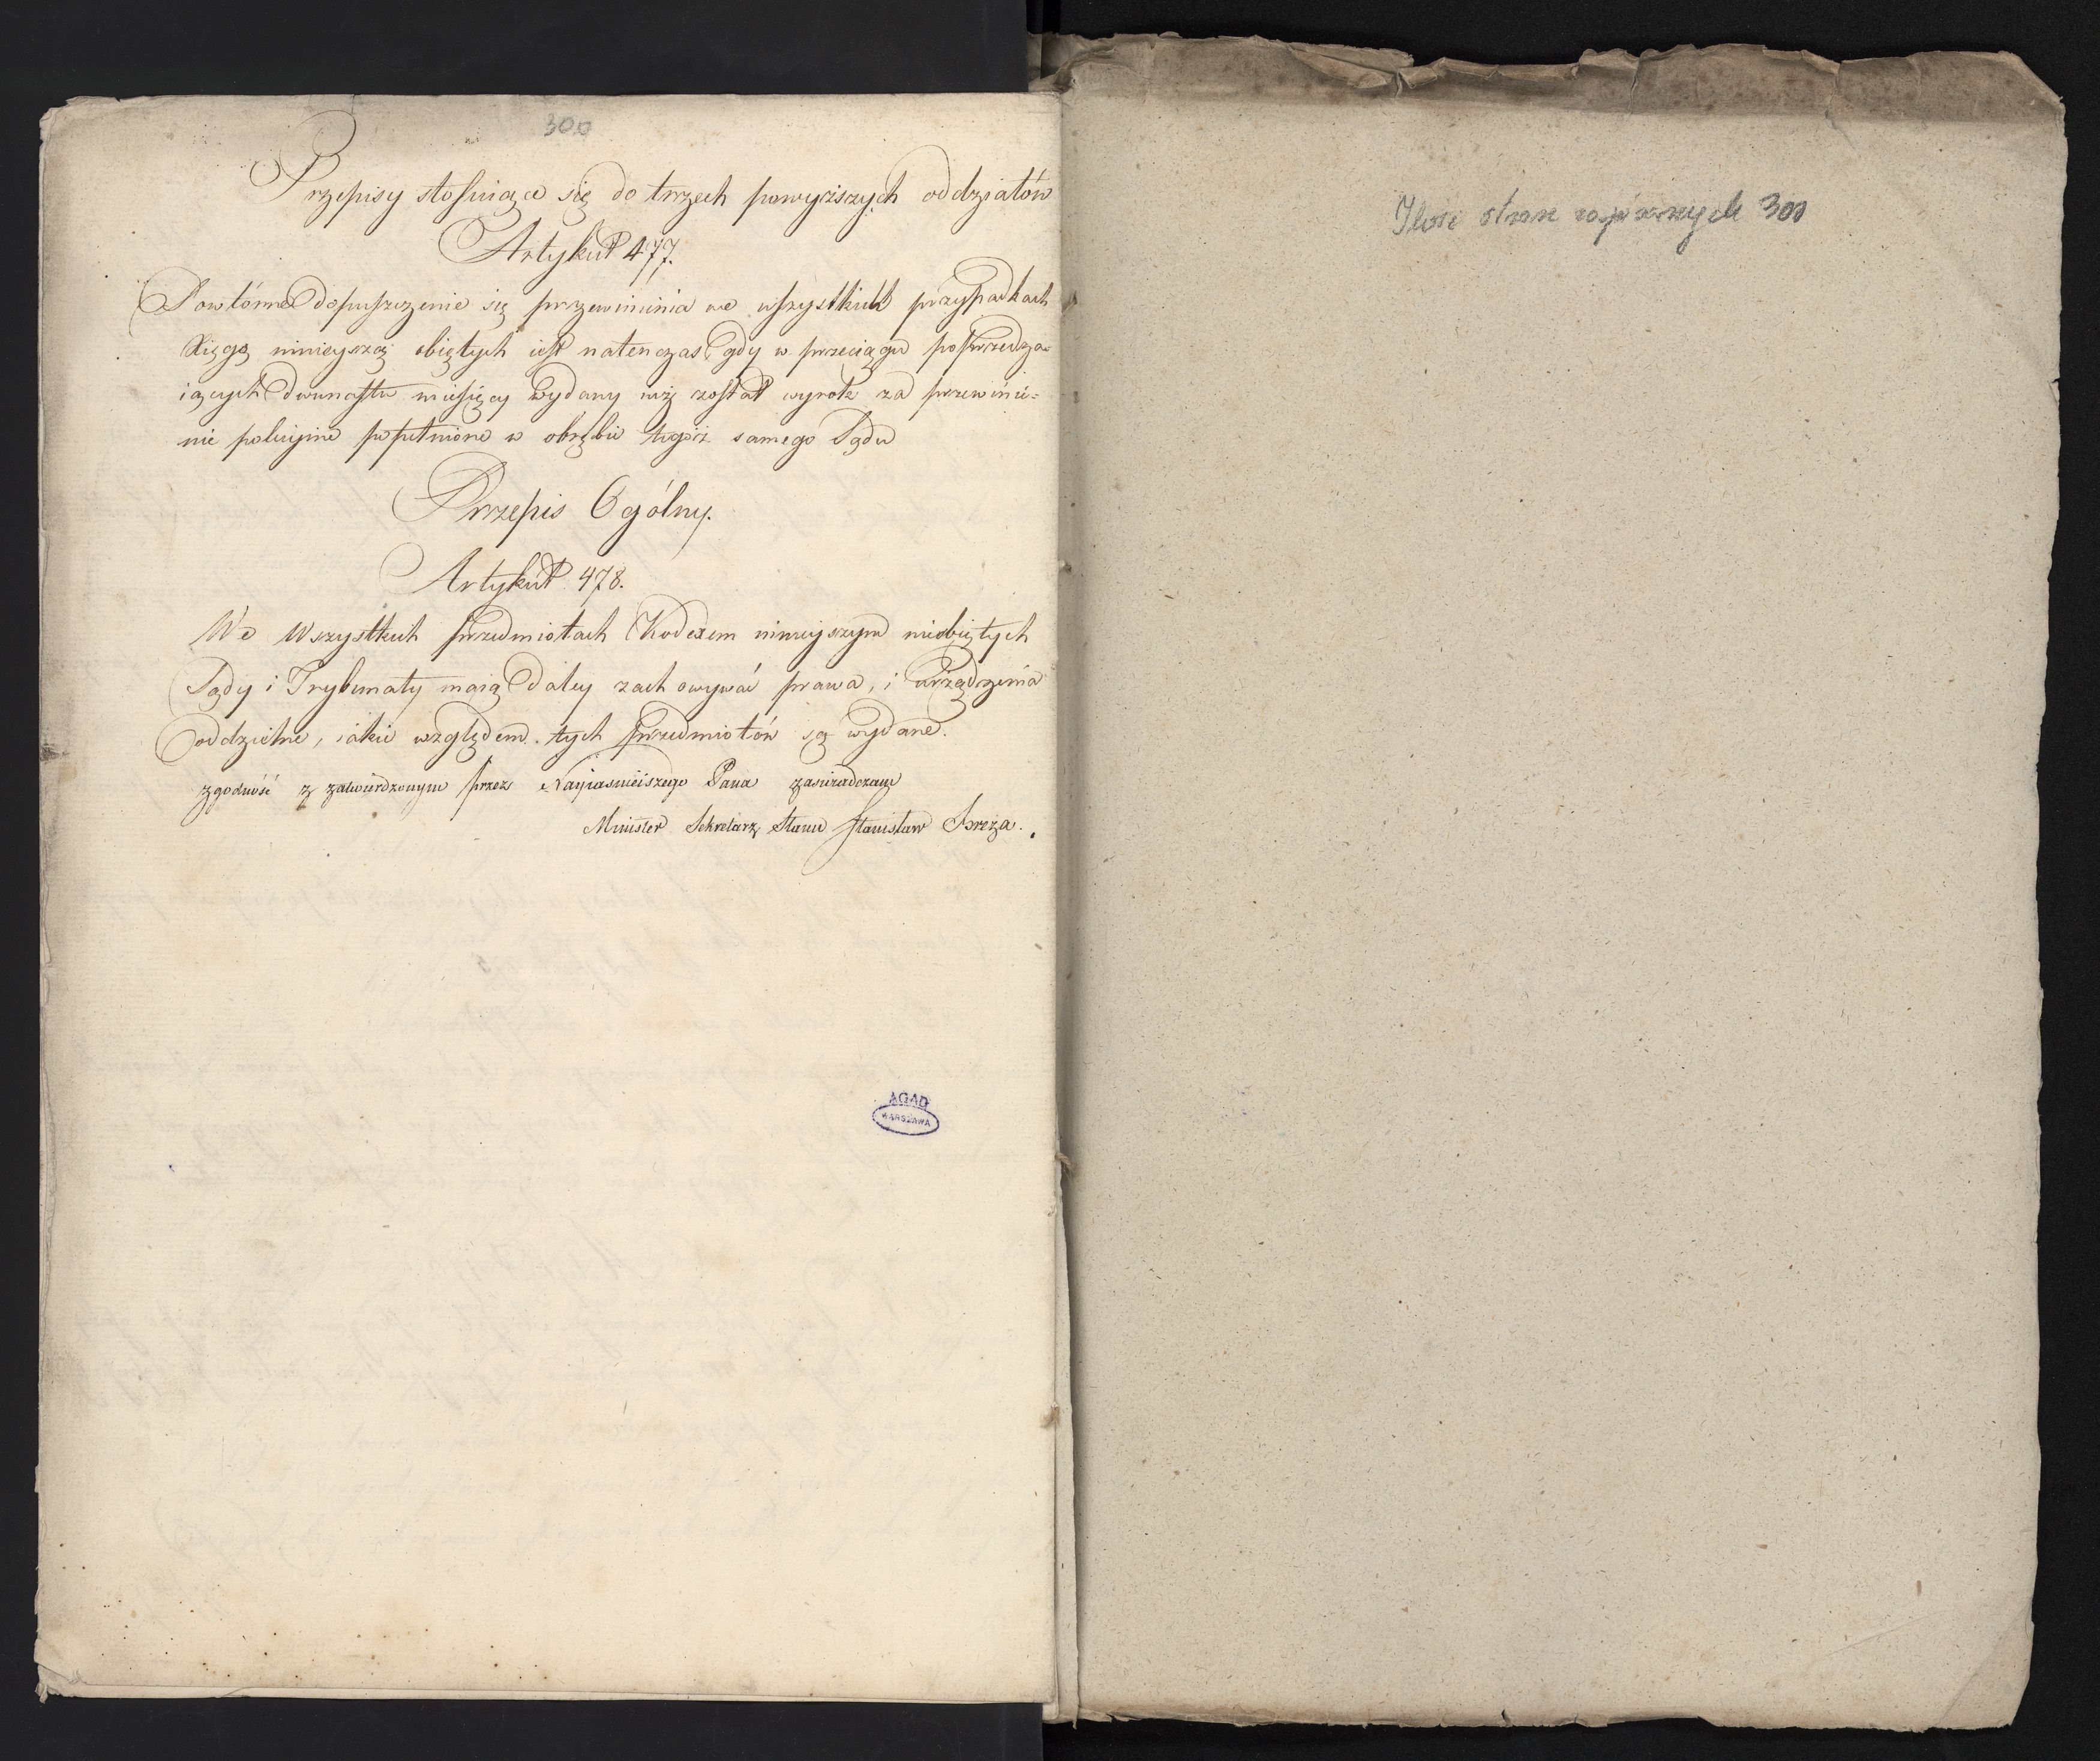 300
Przepisy stosuiące się do trzech powyższych oddziałów
Artykuł 477.
Powtórne dopuszczenie się przewinienia we wszystkich przypadkach
Xięgą ninieyszą obiętych iest natenczas, gdy w przeciągu poprzedza=
iących dwunastu miesięcy wydany iuż został wyrok za przewinie=
nie policyine popełnione w obrębie tegoż samego Sądu
Przepis Ogólny.
Artykuł 478.
We Wszystkich przedmiotach Kodexem ninieyszym nieobiętych
Sądy i Trybunały maią daley zachowywać prawa, i urządzenia
oddzielne, iakie względem tych przedmiotów są wydane.
zgodność z zatwierdzonym przez Nayiasnieiszego Pana zaświadczam
Minister Sekretarz Stanu Stanisław Breza.
AGAD
WARSZAWA
Ilość stron zapisanych 300